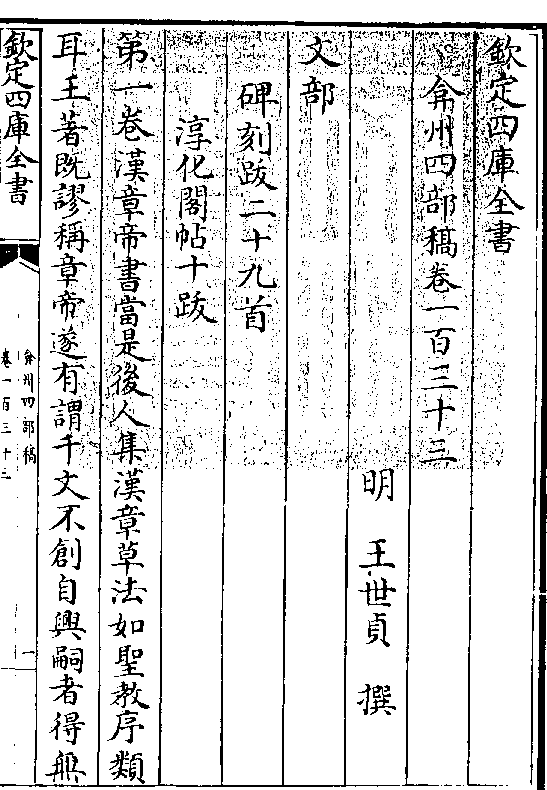 欽定四庫全書
弇州四部稿卷一百三十三
明 王世貞 撰
文部
碑刻跋二十九首
淳化閣帖十跋
第一卷漢章帝書當是後人集漢章草法如聖教序類
耳王著既謬稱章帝遂有謂千文不創自興嗣者得無
欽定四庫全書
弇州四部稿
卷一百三十三
一